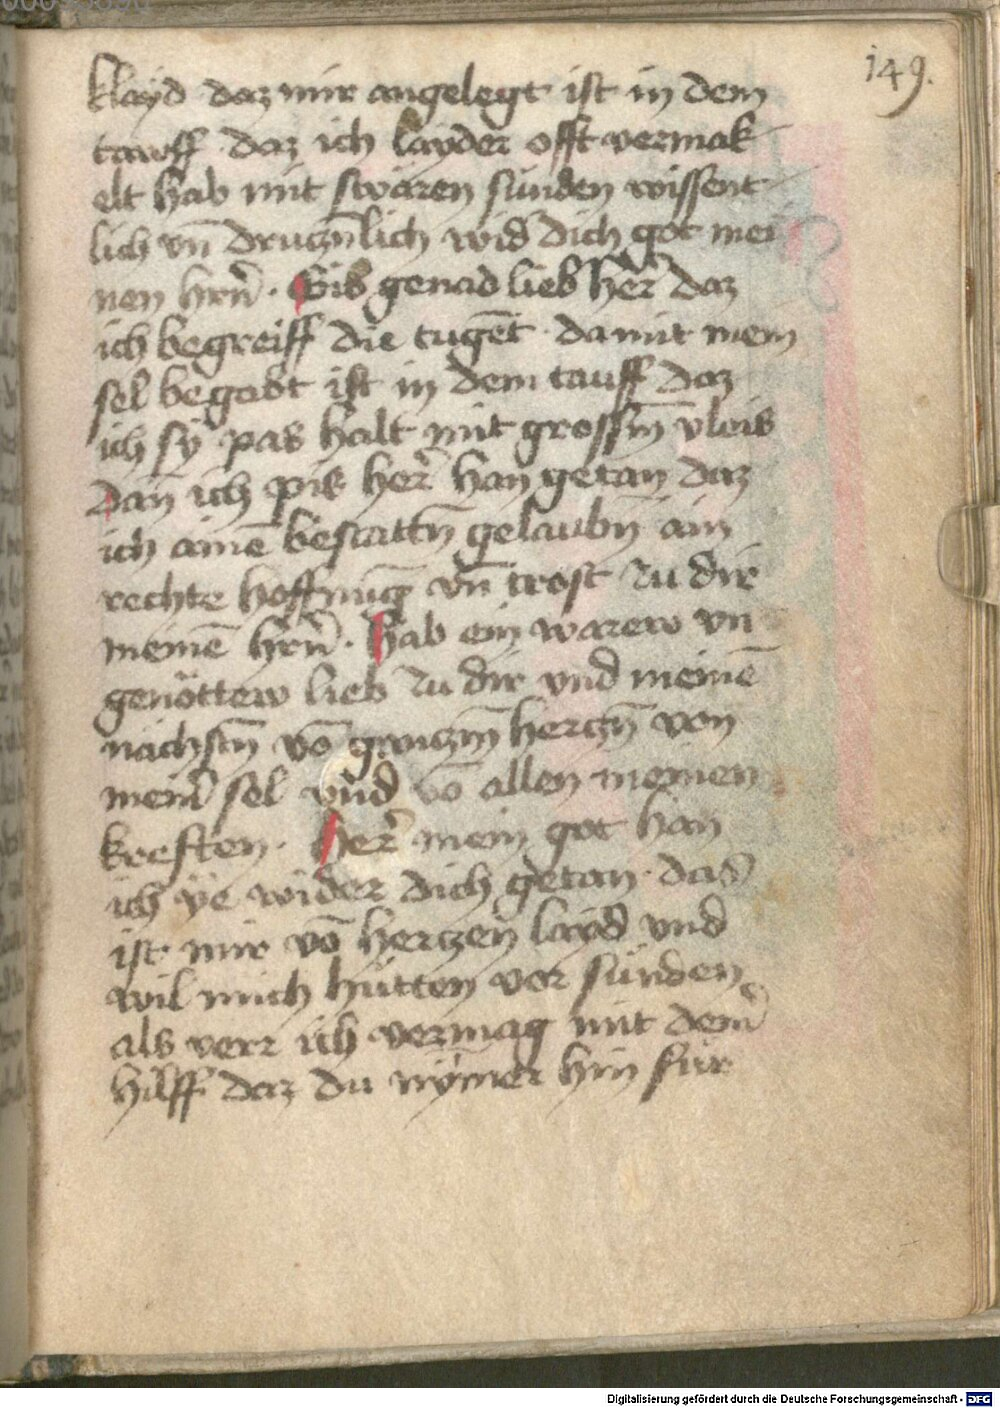 149.
klayd daz mir angelegt ist in dem
tawff daz ich layder offt vermak
elt hab mit swären sünden wissent
lich vn̄ drucznlich wid' dich got mei
nen hrn̄. Gib genad lieb her' daz
ich begreiff die tugēt da mit mein
sel begabt ist in dem tauff daz
ich sy pas halt mit grossm̄ vleis
dan̄ ich pis her' han getan daz
ich ainē bestattn̄ gelaubn̄ ain
rechte hoffnūg vn̄ trost zu dir
meinē hrn̄. Hab ein warew vn̄
genöttew lieb zu dir vnd meinē
nächstn̄ vō ganczm̄ herczn̄ von
mein' sel vnd vō allen meinen
kreften. Her' mein got han
ich ye wider dich getan das
ist mir vō herczen layd vnd
wil mich hütten vor sünden
als verr ich vermag mit dein'
hilff daz du nym̄er hin für
Digitalisierung gefördert durch die Deutsche Forschungsgemeinschaft - DFG